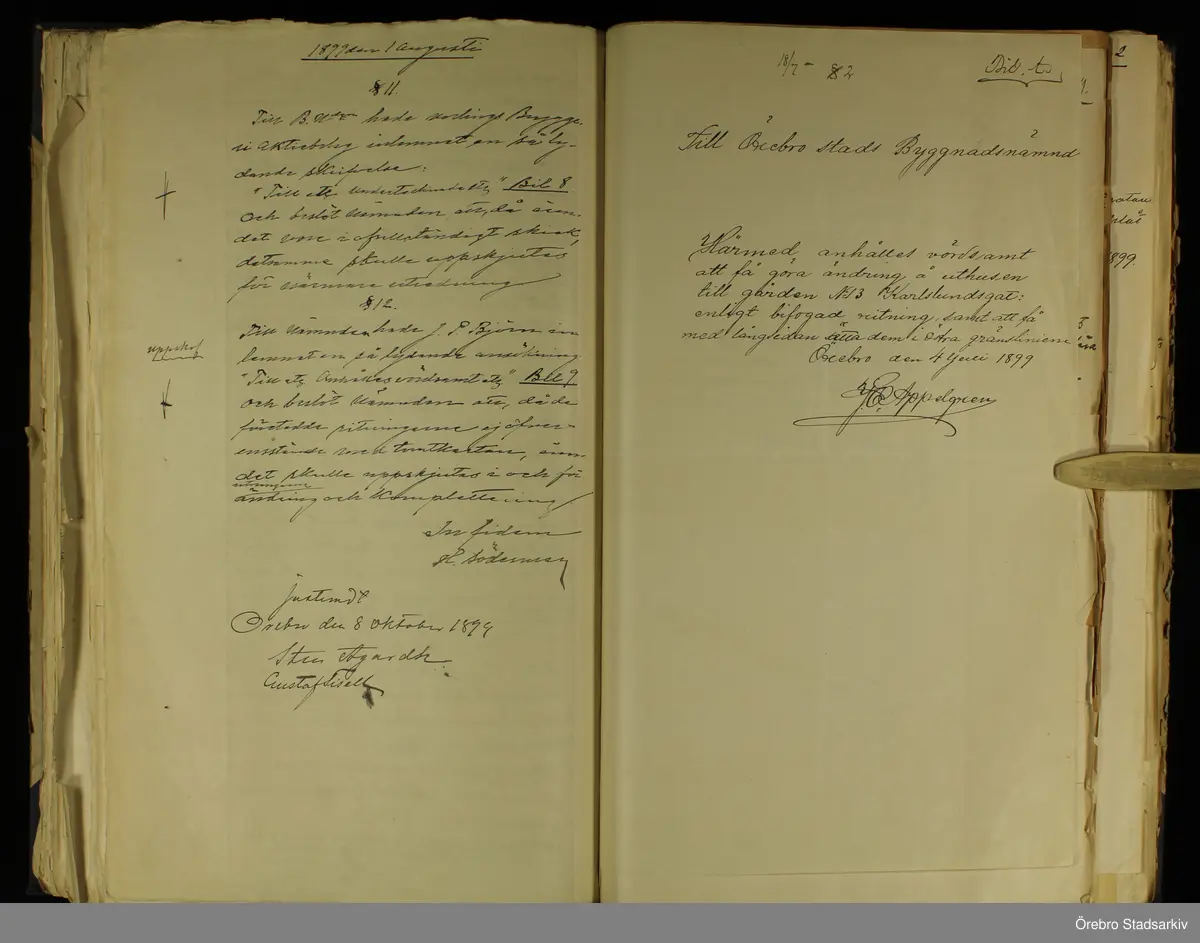 1899 den 1 Augusti
§ 11.
Till B. Nden hade norlings Brygge-
ri Aktiebolag inlemnat en så ly-
dande skrifvelse:
"Till etc undertecknade etc" Bil 8
och beslöt nämnden att, då ären-
det vore i ofullständigt skick,
detsamma skulle uppskjutas
för närmare utredning
§ 12.
uppskof
Till nämnden hade J. P. Björn in
lemnat en så lydande ansökning
"Till etc Anhålles vördsamt etc" Bil 9
och beslöt nämnden att, då de
företedda ritningarne ej öfver-
ensstämde med tomtkartan, ären
det skulle uppskjutas i och för
ritningarne
ändring och komplettering
In fidem
H. Söderman
Justeradt
Örebro den 8 Oktober 1899
Sten Agardh
Gustaf Sisell
18/7 - § 2
Bil. to
Till Örebro stads Byggnadsnämnd
Härmed anhålles vördsamt
att få göra ändring å uthusen
till gården No 13 Karlslundsgat:
enligt bifogad ritning, samt att få
med långsidan dem i östra gränslinien
Örebro den 4 Juli 1899
Appelgren
2
1899
Örebro Stadsarkiv